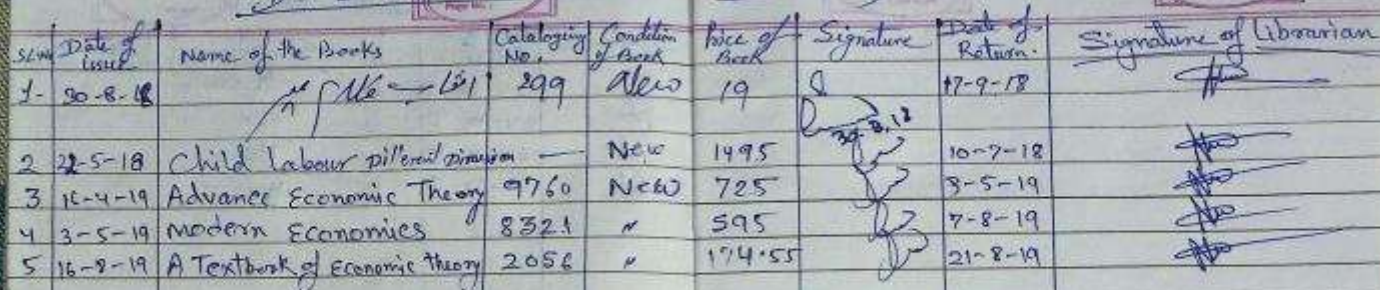 Sl.No Date of Issue Name of the Books Cataloging No. Condition of Book Price of Book Signature Date of Return. Signature of Librarian
1- 30-8-18 299 New 19 17-9-18
30-8-18
2 22-5-18 Child labour Different Dimension — New 1495 10-7-18
3 16-4-19 Advance Economic Theory 9760 New 725 3-5-19
4 3-5-19 Modern Economics 8321 〃 595 7-8-19
5 16-8-19 A Textbook of Economic theory 2056 〃 174.55 21-8-19